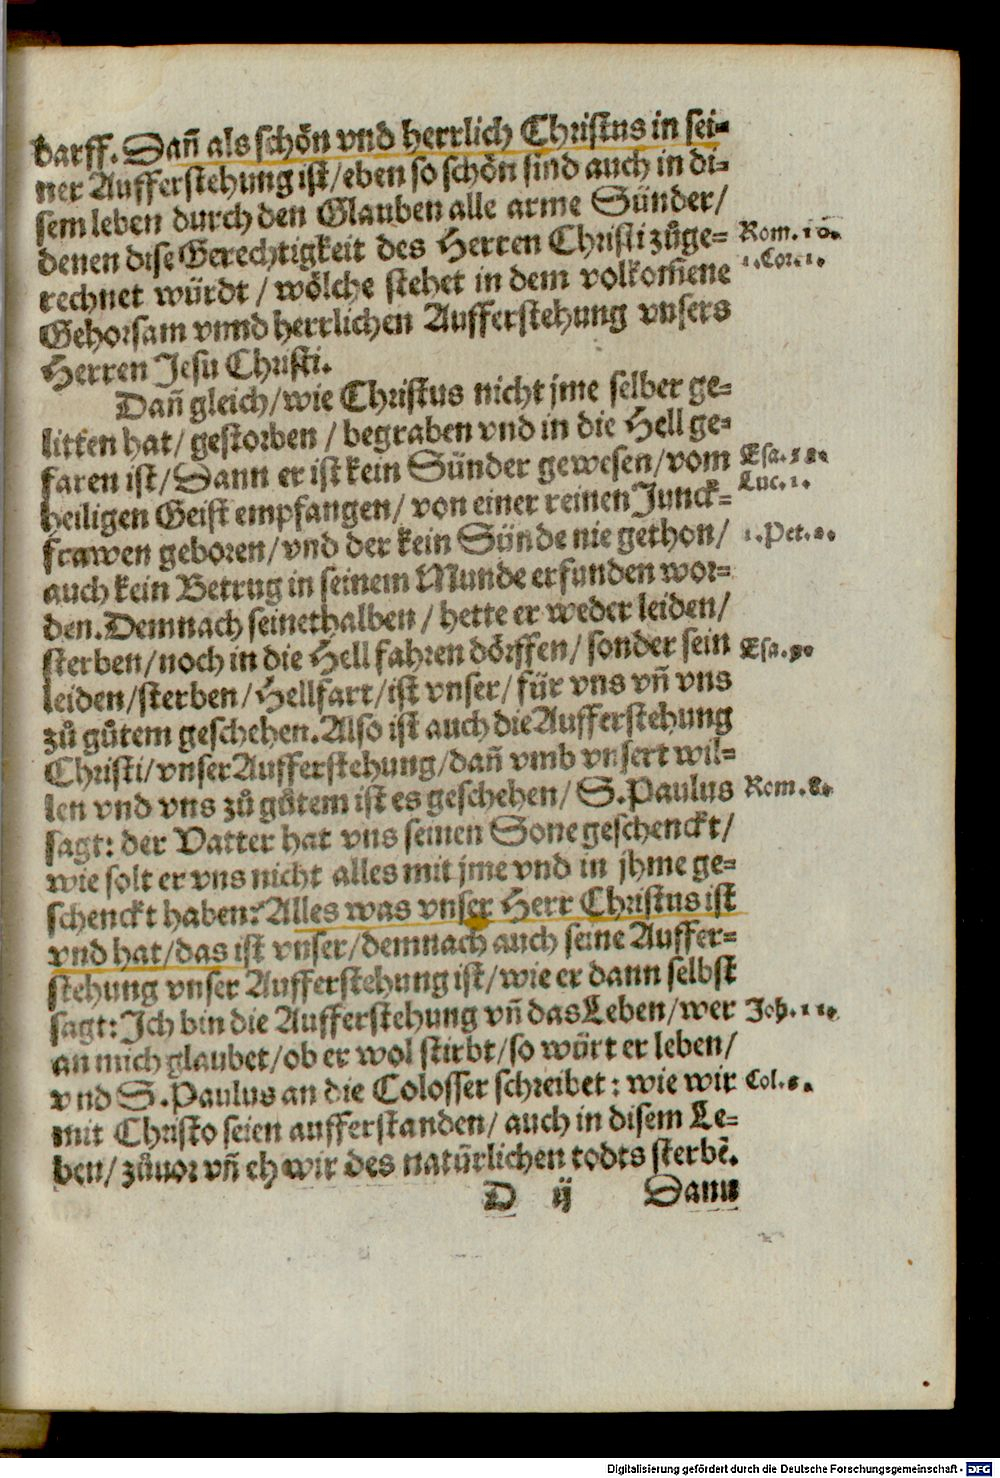 darff. Dañ als schön vnd herrlich Christus in sei-
ner Aufferstehung ist/eben so schön sind auch in di-
sem leben durch den Glauben alle arme Sünder/
denen dise Gerechtigkeit des Herren Christi zůge- Rom. 10.
rechnet würdt / wölche stehet in dem volkom̃ene 1. Cor. 1.
Gehorsam vnnd herrlichen Aufferstehung vnsers
Herren Jesu Christi.
Dañ gleich/wie Christus nicht jme selber ge-
litten hat/ gestorben / begraben vnd in die Hell ge-
faren ist/Dann er ist kein Sünder gewesen/vom Esa.
heiligen Geist empfangen/ von einer reinen Junck- Luc. 1.
frawen geboren/vnd der kein Sünde nie gethon/ 1. Pet. 2.
auch kein Betrug in seinem Munde erfunden wor-
den. Demnach seinethalben / hette er weder leiden/
sterben/noch in die Hell fahren dörffen/ sonder sein Esa.
leiden/sterben/Hellfart/ist vnser/für vns vñ vns
zů gůtem geschehen. Also ist auch die Aufferstehung
Christi/vnser Aufferstehung/dañ vmb vnsert wil-
len vnd vns zů gůtem ist es geschehen/ S. Paulus Rom. 8.
sagt: der Vatter hat vns seinen Sone geschenckt/
wie solt er vns nicht alles mit jme vnd in jhme ge-
schenckt haben? Alles was vnser Herr Christus ist
vnd hat/das ist vnser/demnach auch seine Auffer-
stehung vnser Aufferstehung ist/wie er dann selbst
sagt: Ich bin die Aufferstehung vñ das Leben/wer Joh. 11.
an mich glaubet/ob er wol stirbt/so würt er leben/
vnd S. Paulus an die Colosser schreibet: wie wir Col.
mit Christo seien aufferstanden/ auch in disem Le-
ben/ zůuor vñ eh wir des natürlichen todts sterbẽ.
D ij Dann
Digitalisierung gefördert durch die Deutsche Forschungsgemeinschaft - DFG